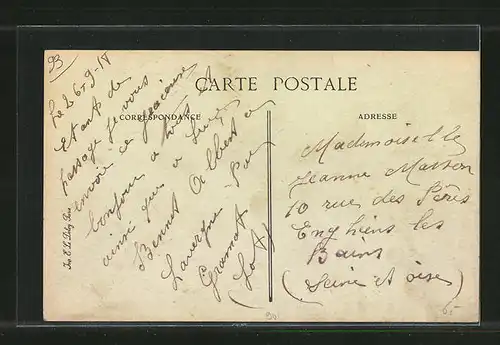 CARTE POSTALE
CORRESPONDANCE
ADRESSE
93
Le 26-9-18
Étant de
passage je vous
envoie ce gracieux
bonjour à tous
ainsi qu'à
Bennet Albert
Lavergne Par
Gramat
(Lot)
Mademoiselle
Jeanne Masson
10 rue des Pères
Enghiens les
Bains
(Seine et oise)